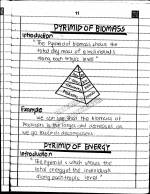 11
PYRIMID OF BIOMASS
Introduction
"The Pyramid of biomass shows the
total dry mass of
along each tropic level"
Example
we can see that the biomass of
Producers is the larges and decreases as
we go towards decomposers
PYRIMID OF ENERGY
Introduction
"The Pyramid which shows the
total energy of the individuals
along each tropic level"